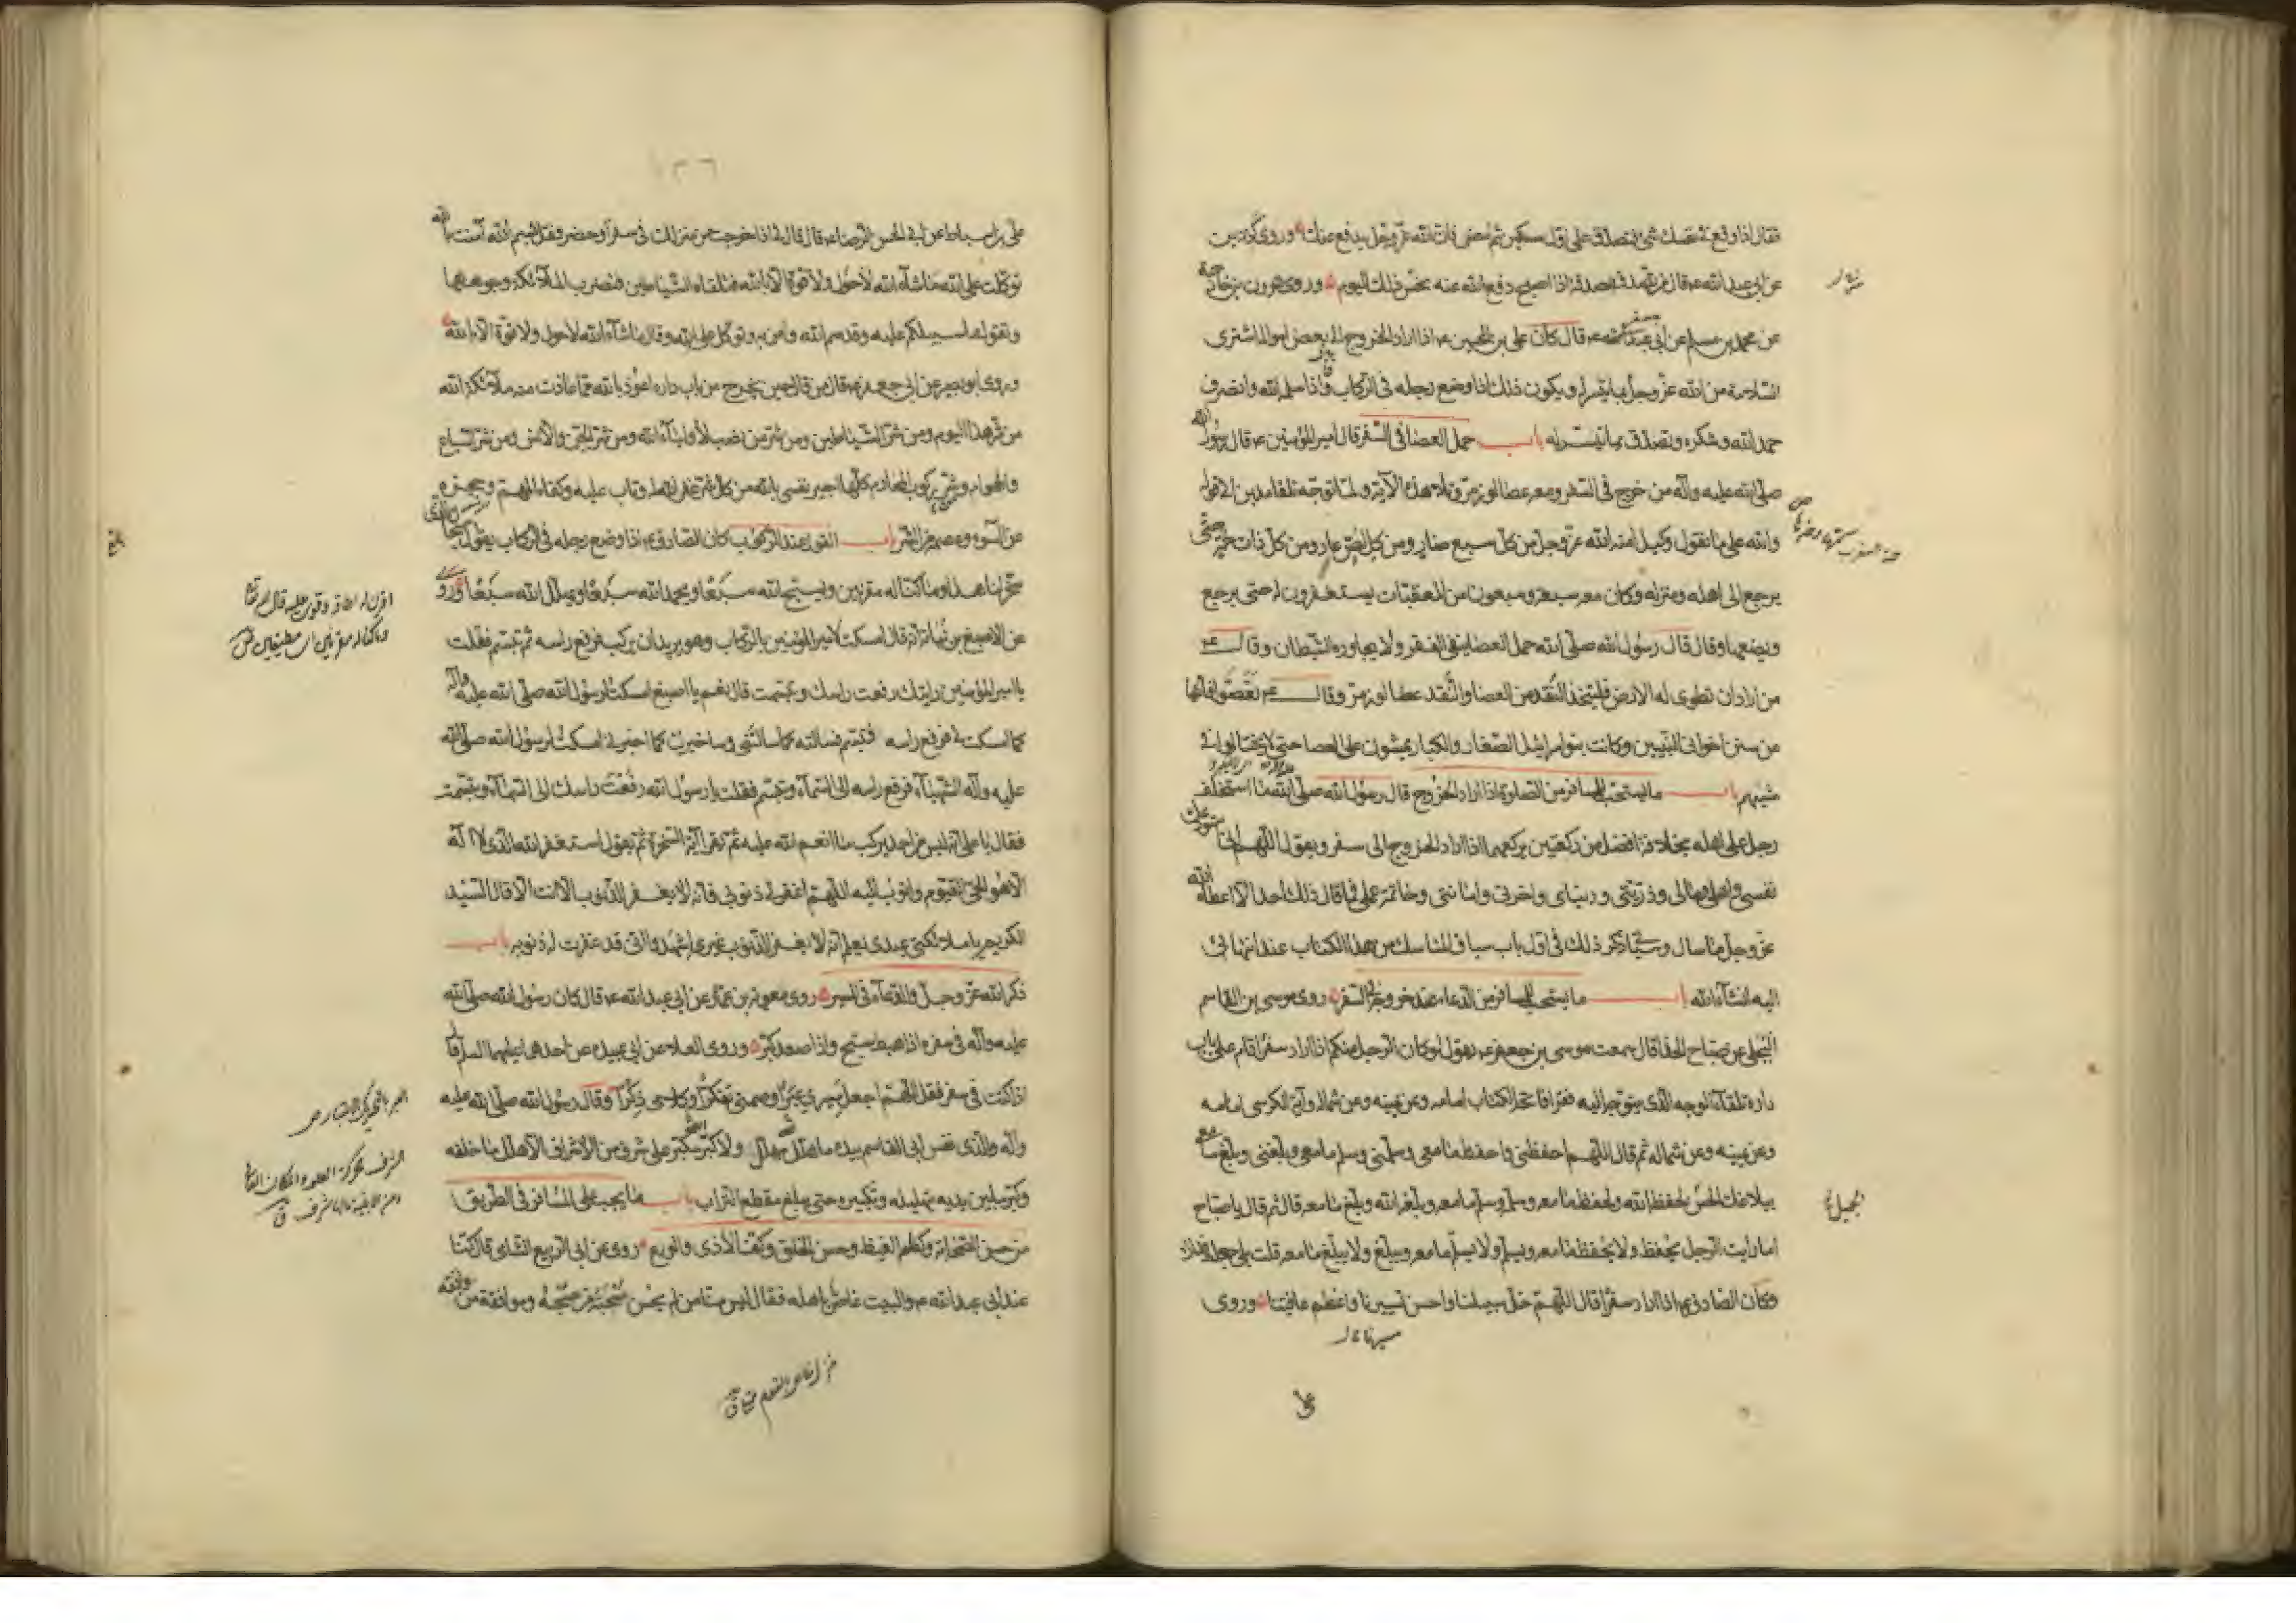 فقال اذا وقع في نفسك شئ فتصدق على اول مسكين ثم امض فان الله عز وجل يدفع عنك وروى كردين
عن ابي عبد الله ع قال من تصدق بصدقة اذا اصبح دفع الله عنه نحس ذلك اليوم وروى هرون بن خارجة
عن محمد بن مسلم عن ابي جعفر ع قال كان علي بن الحسين ع اذا اراد الخروج الى بعض امواله اشترى
السلامة من الله عز وجل بما تيسر له ويكون ذلك اذا وضع رجله في الركاب فاذا سلمه الله وانصرف
حمد الله وشكره وتصدق بما تيسر له باب حمل العصا في السفر قال امير المؤمنين ع قال رسول الله
صلى الله عليه وآله من خرج في السفر ومعه عصا لوز مر وتلا هذه الآية ولما توجه تلقاء مدين الى قوله
والله على ما نقول وكيل امنه الله عز وجل من كل سبع ضار ومن كل لص عاد ومن كل ذات حمة حتى
يرجع الى اهله ومنزله وكان معه سبعة وسبعون من المعقبات يستغفرون له حتى يرجع
ويضعها وقال قال رسول الله صلى الله حمل العصا ينفي الفقر ولا يجاوره الشيطان وقال ع
من اراد ان تطوى له الارض فليتخذ النقد من العصا والنقد عصا لوز مر وقال ع تعصوا فانها
من سنن اخواني النبيين وكانت بنو اسرائيل الصغار والكبار يمشون على العصا حتى لا يختالوا في
مشيهم باب ما يستحب للمسافر من الصلوة اذا اراد الخروج قال رسول الله صلى الله ما استخلف
رجل على اهله بخلافة افضل من ركعتين يركعهما اذا اراد الخروج الى سفر ويقول اللهم اني استودعك
نفسي واهلي ومالي وذريتي ودنياي واخرتي وامانتي وخاتمة عملي فما قال ذلك احد الا اعطاه الله
عز وجل ما سال وسياتي ذكر ذلك في اول باب سياق المناسك من هذا الكتاب عند انتهائي
اليه انشاء الله باب ما يستحب للمسافر من الدعاء عند خروجه في السفر روى موسى بن القاسم
البجلي عن صباح الحذاء قال سمعت موسى بن جعفر ع يقول لو كان الرجل منكم اذا اراد سفرا قام على باب
داره تلقاء الوجه الذي يتوجه اليه فقرا فاتحة الكتاب امامه وعن يمينه وعن شماله وآية الكرسي امامه
وعن يمينه وعن شماله ثم قال اللهم احفظني واحفظ ما معي وسلمني وسلم ما معي وبلغني وبلغ ما معي
ببلاغك الحسن لحفظه الله ولحفظ ما معه وسلمه وسلم ما معه وبلغه الله وبلغ ما معه قال ثم قال يا صباح
اما رايت الرجل يحفظ ولا يحفظ ما معه ويسلم ولا يسلم ما معه ويبلغ ولا يبلغ ما معه قلت بلى جعلت فداك
وكان الصادق ع اذا اراد سفرا قال اللهم خل سبيلنا واحسن تسييرنا واعظم عافيتنا وروى
الجميل
علي
علي بن اسباط عن ابي الحسن الرضا ع قال قال لي اذا خرجت من منزلك في سفر او حضر فقل بسم الله آمنت بالله
توكلت على الله ما شاء الله لا حول ولا قوة الا بالله فتلقاه الشياطين فتضرب الملائكة وجوهها
وتقول ما سبيلكم عليه وقد سمى الله وآمن به وتوكل على الله وقال ما شاء الله لا حول ولا قوة الا بالله
وروى ابو بصير عن ابي جعفر ع قال من قال حين يخرج من باب داره اعوذ بالله مما عاذت منه ملائكة الله
من شر هذا اليوم ومن شر الشياطين ومن شر من نصب لأولياء الله ومن شر الجن والانس ومن شر السباع
والهوام وشر ركوب المحارم كلها اجير نفسي بالله من كل شر غفر الله له وتاب عليه وكفاه المهم وحجزه
عن السوء وعصمه من الشر باب القول عند الركوب كان الصادق ع اذا وضع رجله في الركاب يقول سبحان الذي
سخر لنا هذا وما كنا له مقرنين ويسبح الله سبعا ويحمد الله سبعا ويهلل الله سبعا وروى
عن الاصبغ بن نباتة انه قال امسكت لامير المؤمنين بالركاب وهو يريد ان يركب فرفع راسه ثم تبسم فقلت
يا امير المؤمنين رايتك رفعت راسك وتبسمت قال نعم يا اصبغ امسكت لرسول الله صلى الله عليه وآله
كما امسكت لي فرفع راسه فتبسم فسالته كما سالتني وساخبرك كما اخبرني امسكت لرسول الله صلى الله
عليه وآله الشهباء فرفع راسه الى السماء وتبسم فقلت يا رسول الله رفعت راسك الى السماء وتبسمت
فقال يا علي انه ليس من احد يركب ما انعم الله عليه ثم يقرا آية السخرة ثم يقول استغفر الله الذي لا اله
الا هو الحي القيوم واتوب اليه اللهم اغفر لي ذنوبي فانه لا يغفر الذنوب الا انت الا قال السيد
الكريم يا ملائكتي عبدي يعلم انه لا يغفر الذنوب غيري اشهدوا اني قد غفرت له ذنوبه باب
ذكر الله عز وجل والدعاء في المسير روى معوية بن عمار عن ابي عبد الله ع قال كان رسول الله صلى الله
عليه وآله في سفره اذا هبط سبح واذا صعد كبر وروى العلا عن ابي عبيدة عن احدهما عليهما السلام قال
اذا كنت في سفر فقل اللهم اجعل مسيري عبرا وصمتي تفكرا وكلامي ذكرا وقال رسول الله صلى الله عليه
وآله والذي نفس ابي القاسم بيده ما هلل مهلل ولا كبر مكبر على شرف من الاشراف الا هلل ما خلفه
وكبر ما بين يديه بتهليله وتكبيره حتى يبلغ مقطع التراب باب ما يجب على المسافر في الطريق
من حسن الصحابة وكظم الغيظ وحسن الخلق وكف الاذى والورع روى عن ابي الربيع الشامي قال كنا
عند ابي عبد الله ع والبيت غاص باهله فقال ليس منا من لم يحسن صحبة من صحبه وموافقة من وافقه